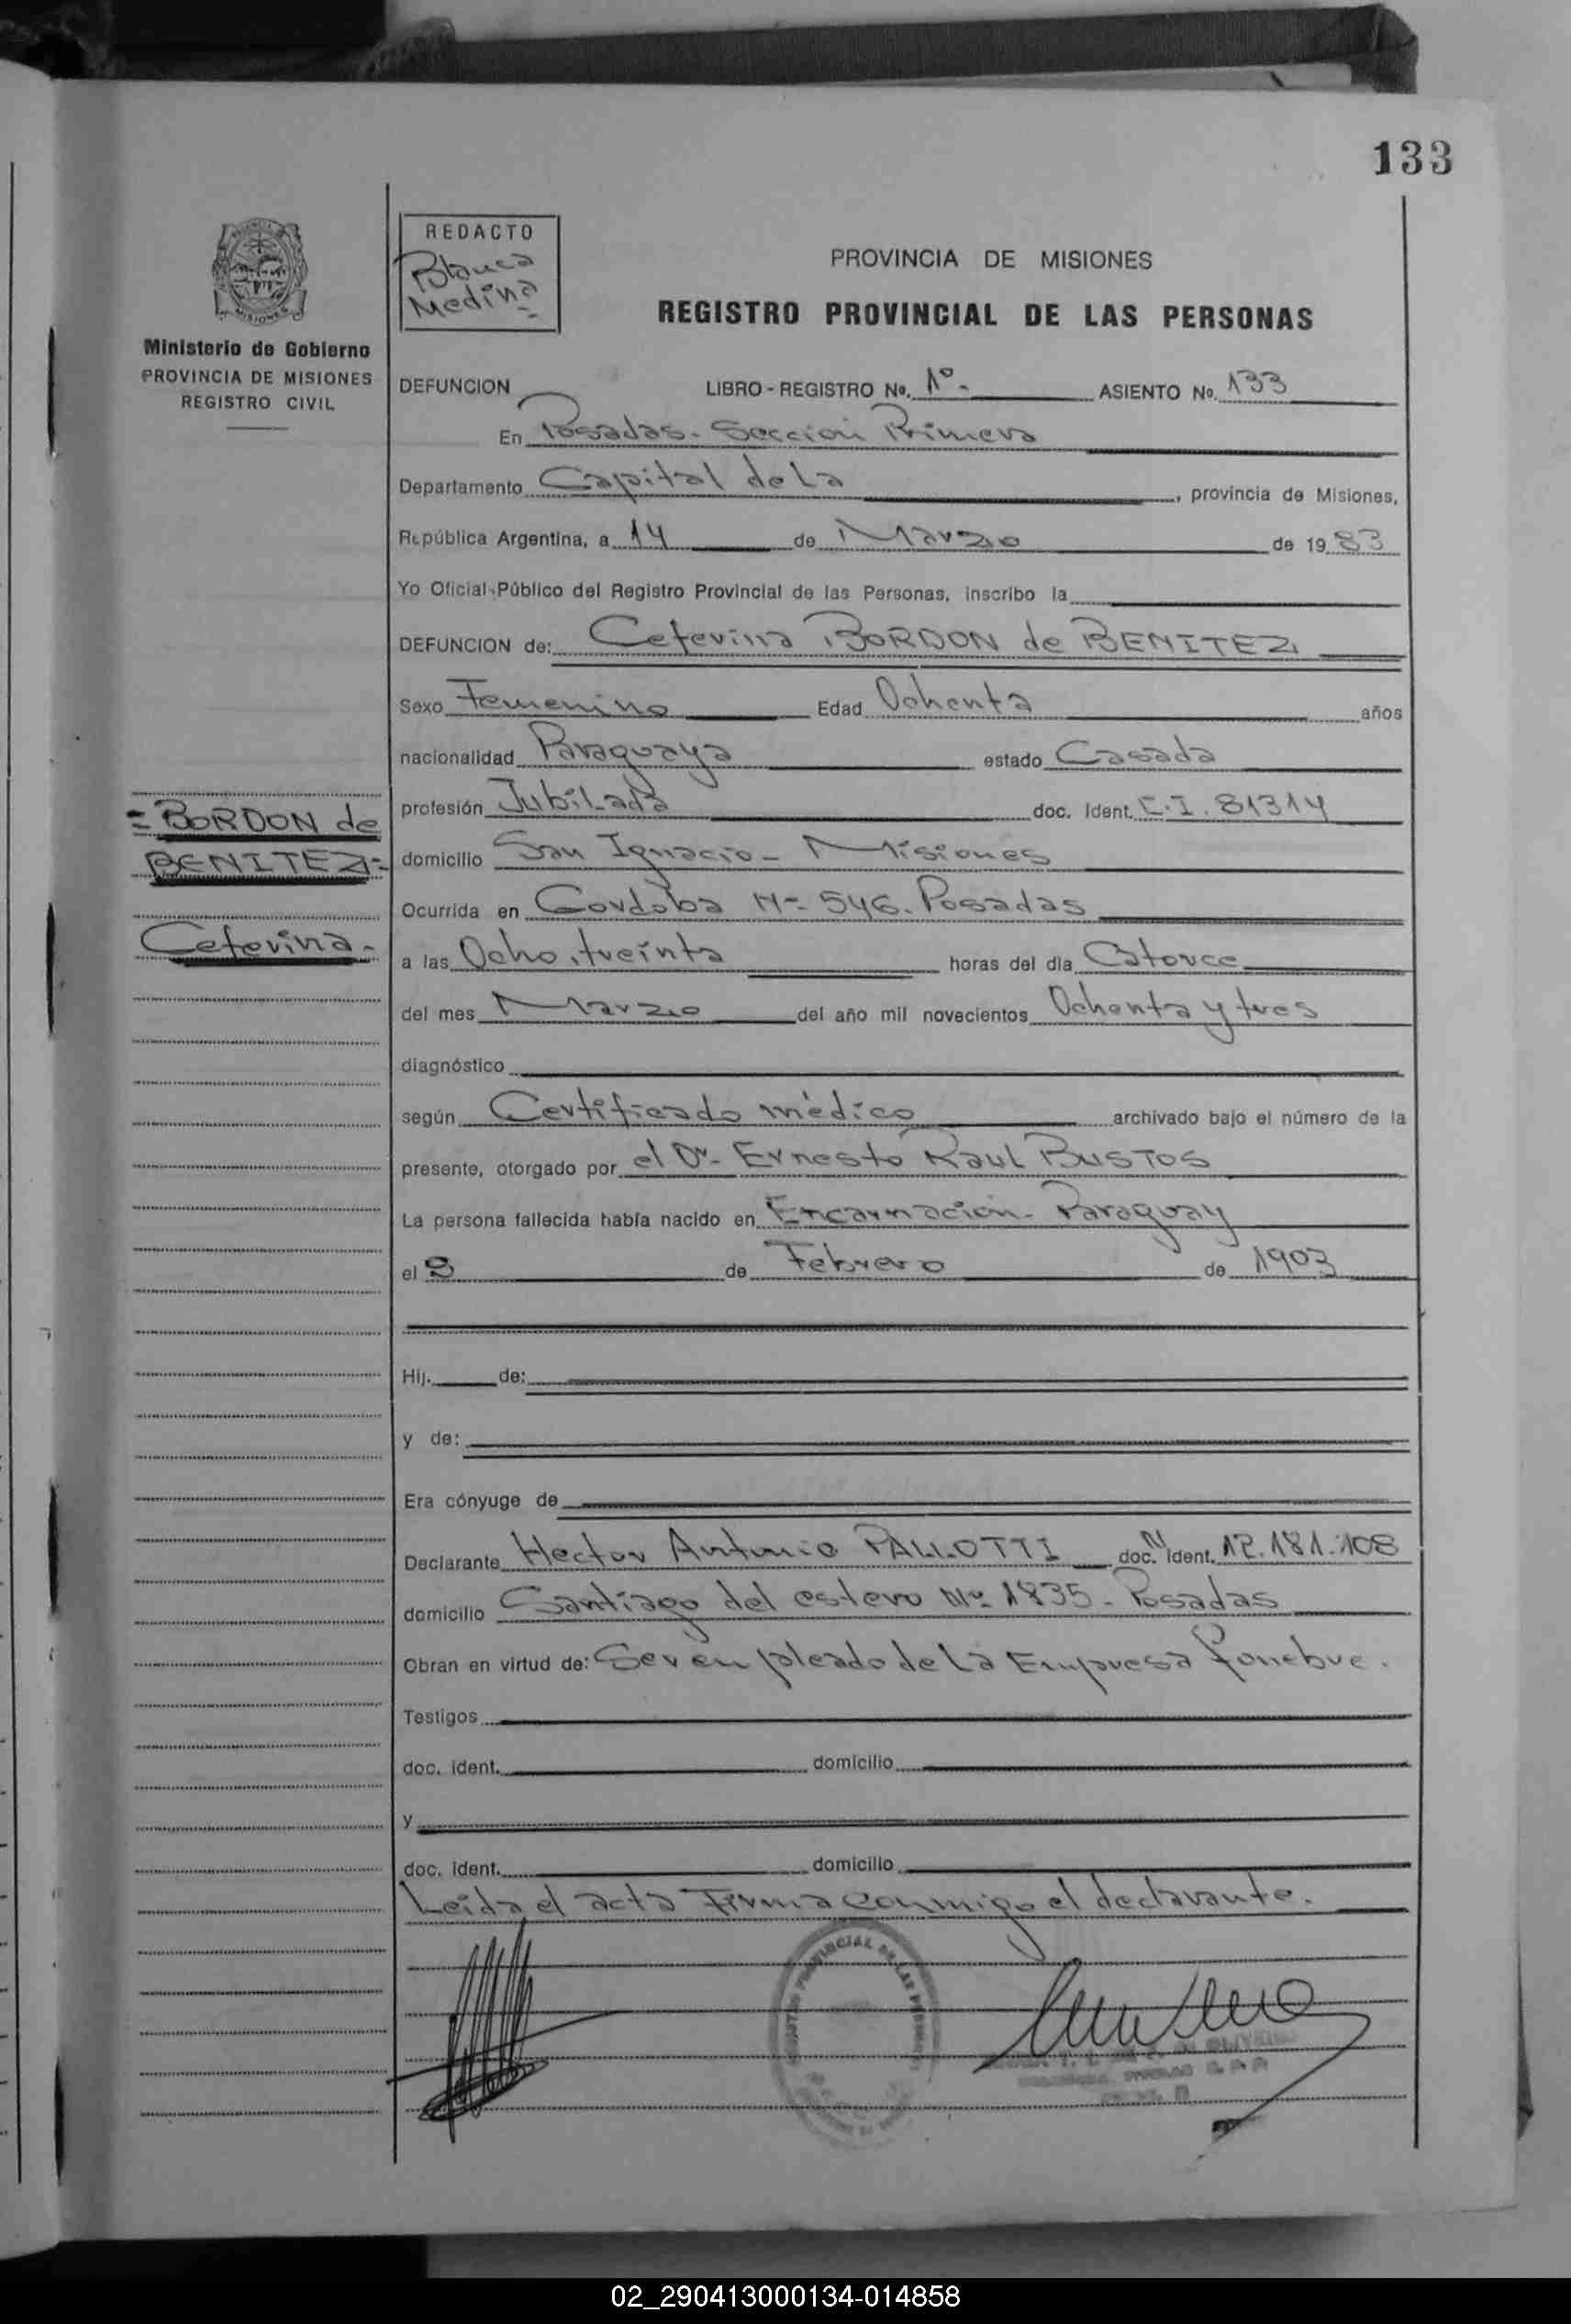 133
REDACTO
Blanca
Medina
PROVINCIA DE MISIONES
REGISTRO PROVINCIAL DE LAS PERSONAS
Ministerio de Gobierno
PROVINCIA DE MISIONES
REGISTRO CIVIL
DEFUNCION LIBRO - REGISTRO No. 1º - ASIENTO No. 133
En Posadas - Sección Primera
Departamento Capital de La, provincia de Misiones,
República Argentina, a 14 de Marzo de 1983
Yo Oficial Público del Registro Provincial de las Personas, inscribo la
DEFUNCION de: Ceferina BORDON de BENITEZ
Sexo Femenino Edad Ochenta años
nacionalidad Paraguaya estado Casada
= BORDON de
BENITEZ =
Ceferina -
profesión Jubilada doc. Ident. C.I. 81314
domicilio San Ignacio - Misiones
Ocurrida en Cordoba Nº 546. Posadas
a las Ocho, treinta horas del día Catorce
del mes Marzo del año mil novecientos Ochenta y tres
diagnóstico
según Certificado médico archivado bajo el número de la
presente, otorgado por el Dr. Ernesto Raul BUSTOS
La persona fallecida había nacido en Encarnación - Paraguay
el 2 de Febrero de 1903
Hij. de:
y de:
Era cónyuge de
Declarante Hector Antonio PALLOTTI doc. Ident. 12.181.108
domicilio Santiago del estero Nº 1835 - Posadas
Obran en virtud de: Ser empleado de La Empresa fonebre.
Testigos
doc. ident. domicilio
y
doc. ident. domicilio
Leida el acta Firma conmigo el declarante.
02_290413000134-014858